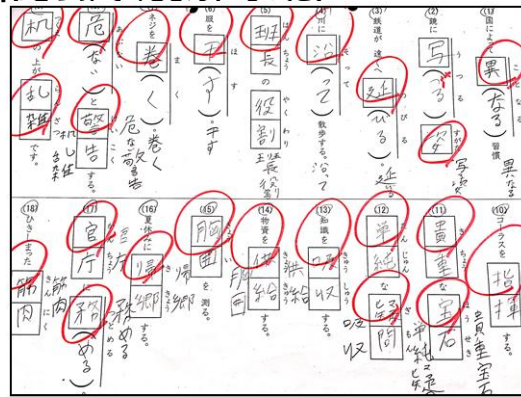 (1)国によって異(なる)習慣 異なる
(2)鏡に写る姿 写 姿
(3)鉄道が遠くへ延(びる) 延
(4)川に沿(って)散歩する。沿って
(5)班長の役割 班長役割
服を干(す) 干す
ネジを巻(く) 巻く
危(ない)と警告する。危な警告
机の上が乱雑です。机
(10)コーラスを指揮
(11)貴重な宝石 貴重宝石
(12)単純な疑問 単純
(13)知識を吸収する。吸収
(14)物資を供給する。供給
(15)胸囲を測る。胸囲
(16)夏休みに帰郷する。帰郷
(17)官庁に務(める)。官庁 務める
(18)ひきしまった筋肉 筋肉